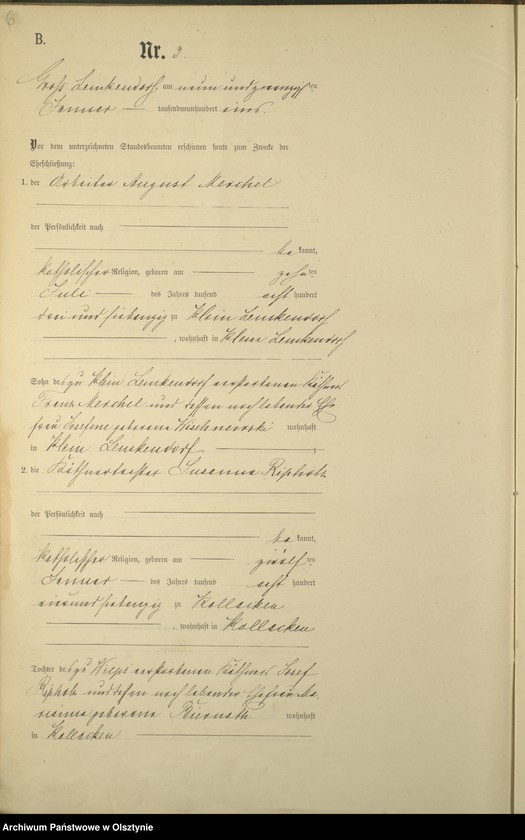 6
B.
Nr. 3
Gross Lemkendorf, am neun und zwanzigsten
Januar tausendneunhundert eins.
Vor dem unterzeichneten Standesbeamten erschienen heute zum Zwecke der
Eheschließung:
1. der Arbeiter August Merchel
der Persönlichkeit nach
be kannt,
katholischer Religion, geboren am zehn ten
Juli des Jahres tausend acht hundert
drei und siebenzig zu Klein Lemkendorf
, wohnhaft in Klein Lemkendorf
Sohn des zu Klein Lemkendorf verstorbenen Käthners
Franz Merchel und dessen noch lebender Ehe-
frau Josefine geborene wohnhaft
in Klein Lemkendorf ;
2. die Käthnertochter Susanna
der Persönlichkeit nach
be kannt,
katholischer Religion, geboren am zwölf ten
Januar des Jahres tausend acht hundert
und siebenzig zu Kollacken
, wohnhaft in Kollacken
Tochter des zu verstorbenen Käthners Josef
und dessen noch lebender Ehefrau Ma-
rianna geborene wohnhaft
in Kollacken
Archiwum Państwowe w Olsztynie